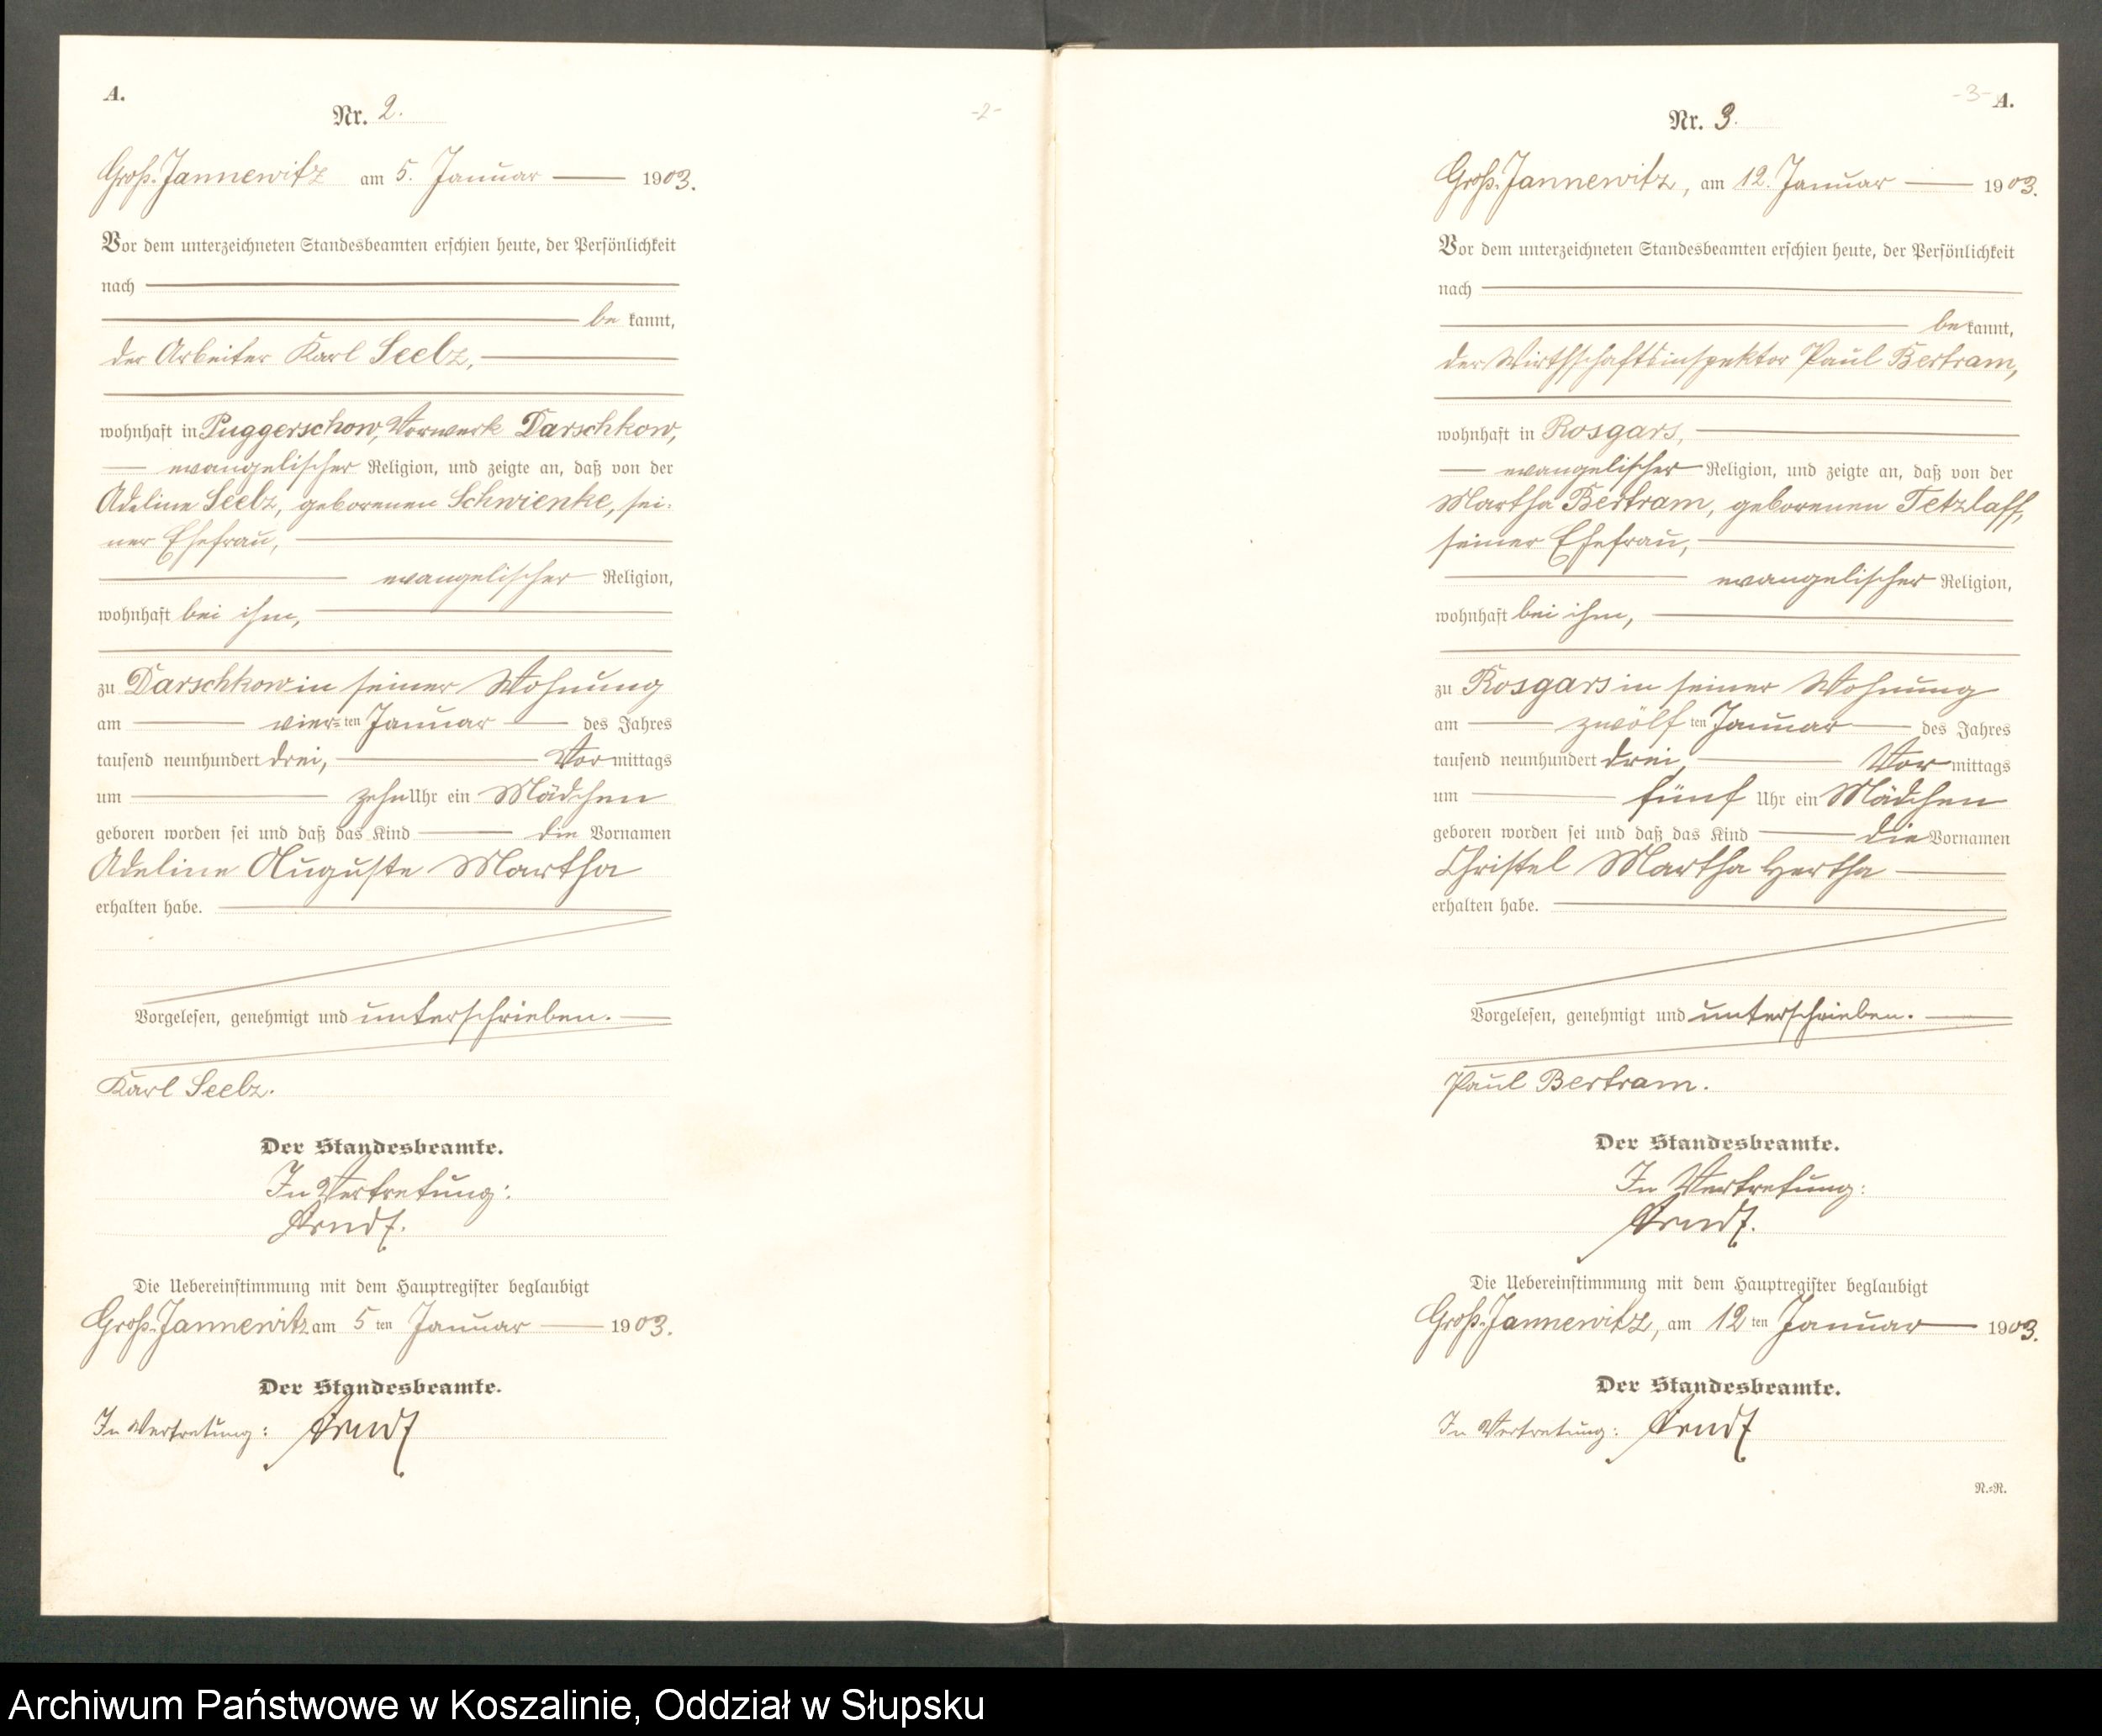 A.
Nr. 2.
-2-
Groß-Jannewitz am 5. Januar 1903.
Vor dem unterzeichneten Standesbeamten erschien heute, der Persönlichkeit
nach
be kannt,
der Arbeiter Karl Seelz,
wohnhaft in Puggerschow, Vorwerk Darschkow,
evangelischer Religion, und zeigte an, daß von der
Adeline Seelz, geborenen Schwienke, sei-
ner Ehefrau,
evangelischer Religion,
wohnhaft bei ihm,
zu Darschkow in seiner Wohnung
am vier-ten Januar des Jahres
tausend neunhundert drei, Vor mittags
um zehn Uhr ein Mädchen
geboren worden sei und daß das Kind die Vornamen
Adeline Auguste Martha
erhalten habe.
Vorgelesen, genehmigt und unterschrieben.
Karl Seelz.
Der Standesbeamte.
In Vertretung:
Arndt.
Die Uebereinstimmung mit dem Hauptregister beglaubigt
Groß-Jannewitz am 5 ten Januar 1903.
Der Standesbeamte.
In Vertretung: Arndt
-3- A.
Nr. 3.
Groß-Jannewitz, am 12. Januar 1903.
Vor dem unterzeichneten Standesbeamten erschien heute, der Persönlichkeit
nach
be kannt,
der Wirthschaftsinspektor Paul Bertram,
wohnhaft in Rosgars,
evangelischer Religion, und zeigte an, daß von der
Martha Bertram, geborenen Tetzlaff,
seiner Ehefrau,
evangelischer Religion,
wohnhaft bei ihm,
zu Rosgars in seiner Wohnung
am zwölf ten Januar des Jahres
tausend neunhundert drei, Vor mittags
um fünf Uhr ein Mädchen
geboren worden sei und daß das Kind die Vornamen
Christel Martha Hertha
erhalten habe.
Vorgelesen, genehmigt und unterschrieben.
Paul Bertram.
Der Standesbeamte.
In Vertretung:
Arndt.
Die Uebereinstimmung mit dem Hauptregister beglaubigt
Groß-Jannewitz, am 12 ten Januar 1903.
Der Standesbeamte.
In Vertretung: Arndt
N.=R.
Archiwum Państwowe w Koszalinie, Oddział w Słupsku